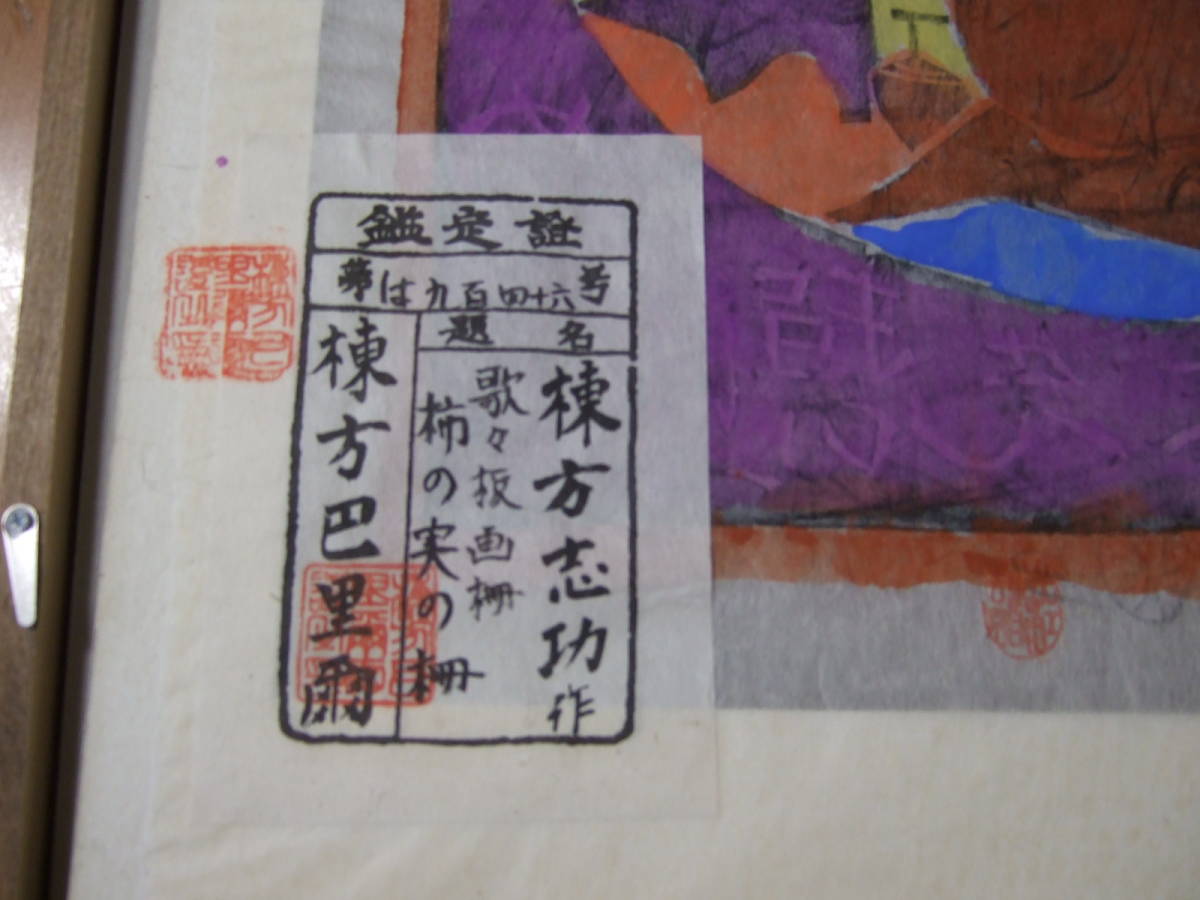 鑑定證
第は九百四十六号
題名
棟方志功作
歌々板画柵
柿の実の柵
棟方巴里爾